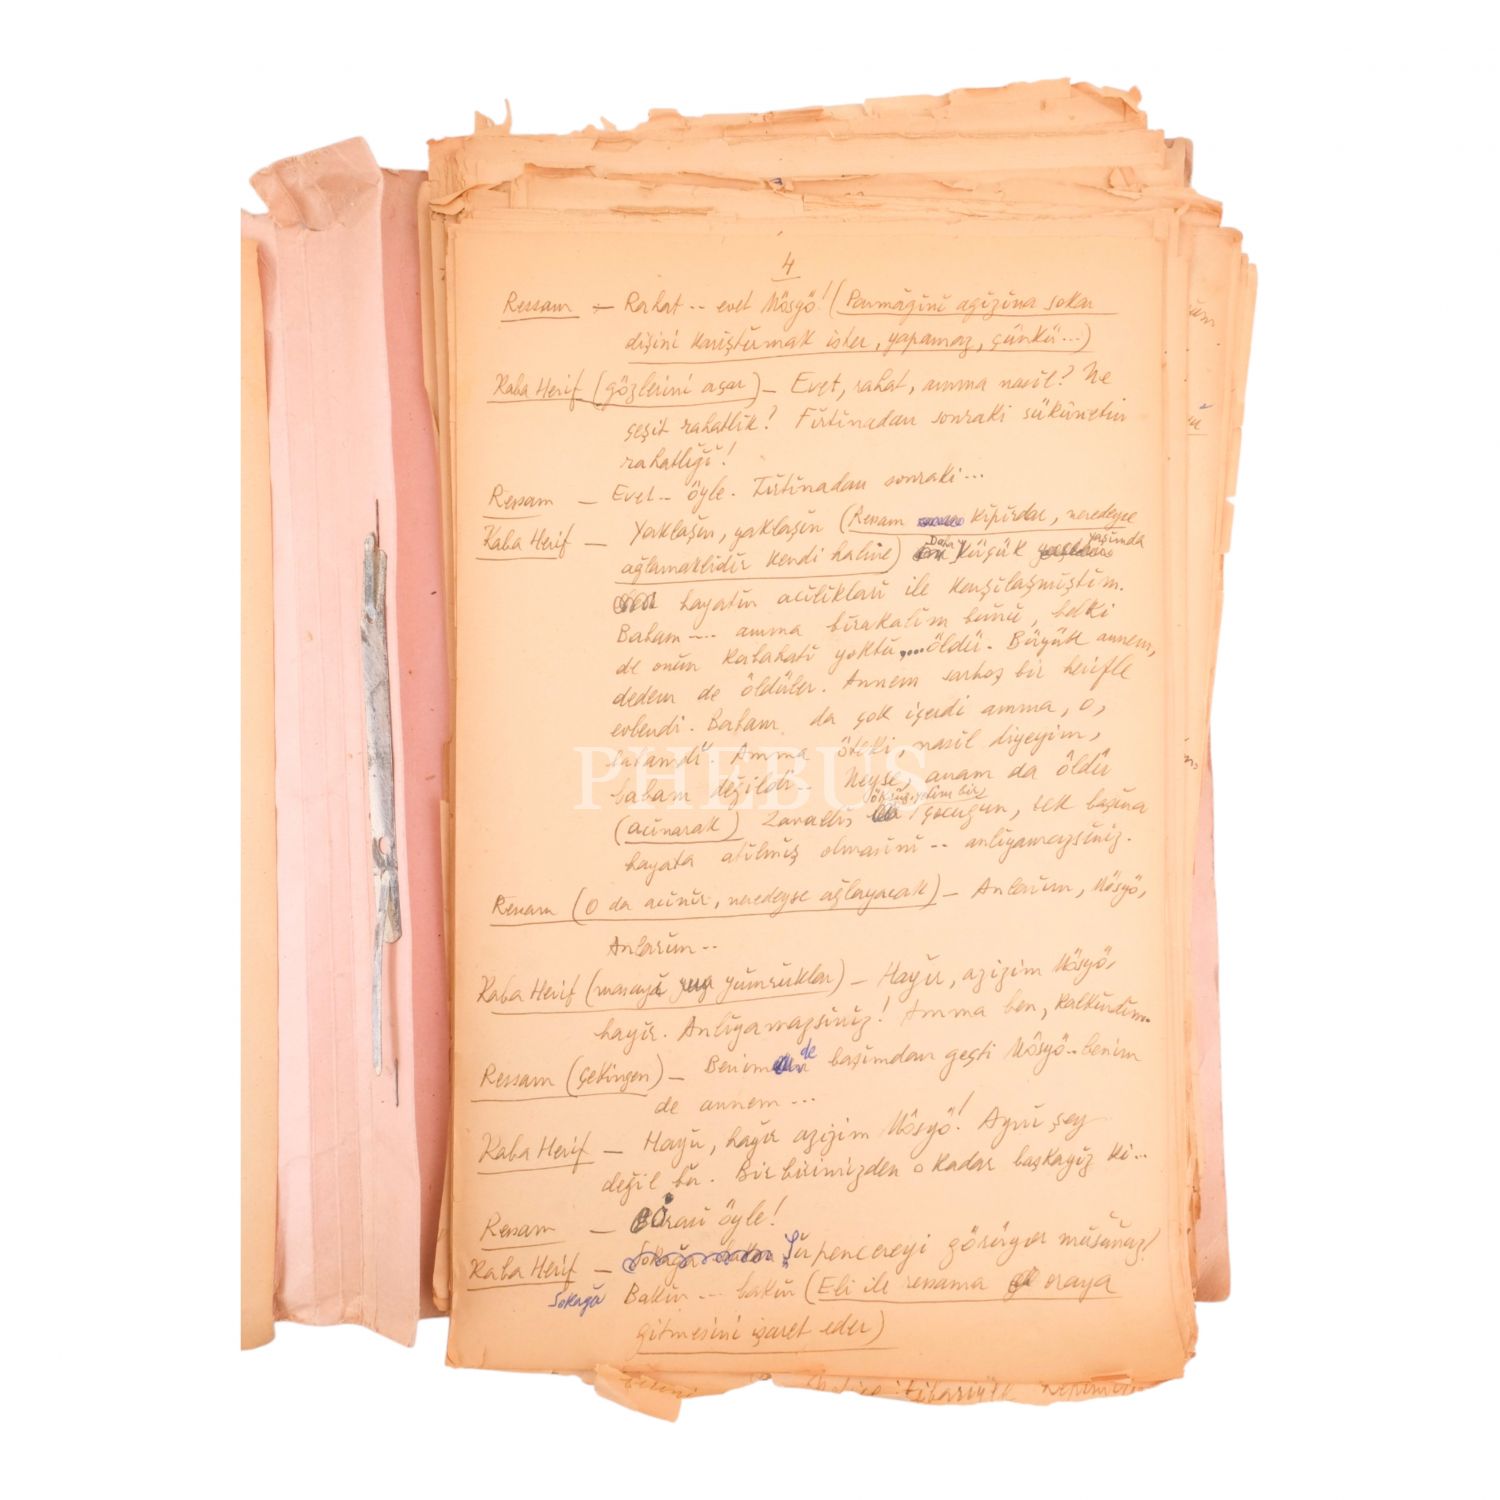 4
Ressam — Rahat .. evet Mösyö! (Parmağını ağızına sokar
dişini karıştırmak ister, yapamaz, çünkü...)
Kaba Herif (gözlerini açar) — Evet, rahat, amma nasıl? Ne
çeşit rahatlık? Fırtınadan sonraki sükûnetin
rahatlığı!
Ressam — Evet .. öyle. Fırtınadan sonraki...
Kaba Herif — Yaklaşın, yaklaşın (Ressam kıpırdar, neredeyse
ağlamaklıdır kendi haline) Daha küçük yaşımda
hayatın acılıkları ile karşılaşmıştım.
Babam .... amma bırakalım bunu, belki
de onun kabahati yoktu,....öldü. Büyük annem,
dedem de öldüler. Annem sarhoş bir herifle
evlendi. Babam da çok içerdi amma, o,
babamdı. Amma öteki, nasıl diyeyim,
babam değildi.. Neyse, anam da öldü
(acınarak) Zavallı, öksüz, yetim bir çocuğun, tek başına
hayata atılmış olmasını .. anlıyamazsınız.
Ressam (O da acınır, neredeyse ağlayacak) — Anlarım, Mösyö,
Anlarım..
Kaba Herif (masayı yumruklar) — Hayır, azizim Mösyö,
hayır. Anlıyamazsınız! Amma ben, kalkındım.
Ressam (çekingen) — Benim de başımdan geçti Mösyö.. benim
de annem ...
Kaba Herif — Hayır, hayır azizim Mösyö! Aynı şey
değil bu. Bir birimizden o kadar başkayız ki...
Ressam — Orası öyle!
Kaba Herif — Şu pencereyi görüyor musunuz?
Sokağa Bakın ... bakın (Eli ile ressama oraya
gitmesini işaret eder)
PHEBUS